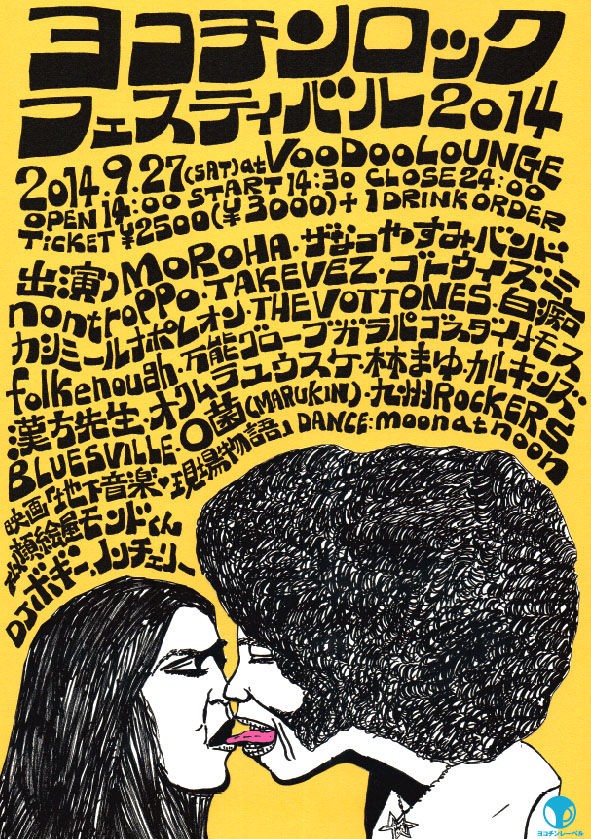 ヨコチンロック
フェスティバル2014
2014.9.27(SAT)at VOODOOLOUNGE
OPEN 14:00 START 14:30 CLOSE 24:00
TICKET ¥2500(¥3000)+1DRINK ORDER
出演)MOROHA・ザ・なつやすみバンド
nontroppo・TAKEVEZ・ゴトウイズミ
カシミールナポレオン・THE VOTTONES・白痴
folk enough・万能グローブガラパゴスダイナモス
漢方先生・オクムラユウスケ・林まゆ・カルキンズ
BLUESVILLE・○菌(MARUKIN)・九州ROCKERS
映画「地下音楽・現場物語」DANCE:moon at noon
似顔絵屋モンドくん
DJボギー、ノンチェリー
ヨコチンレーベル